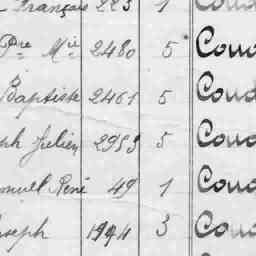 Français 223 1 Cond
Pre Mie 2480 5 Cond
Baptiste 2461 5 Cond
ph Julien 2953 5 Cond
muel René 49 1 Cond
Joseph 1941 3 Cond